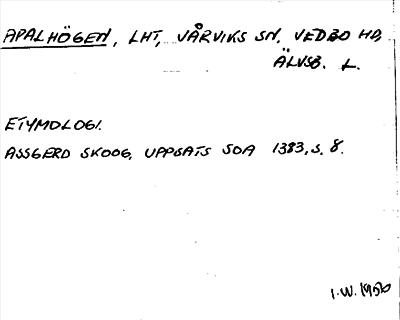 APALHÖGEN, LHT, VÅRVIKS SN, VEDBO HD,
ÄLVSB. L.
ETYMOLOGI.
ASSGERD SKOOG, UPPSATS SOA 1383, S. 8.
I.W. 1950